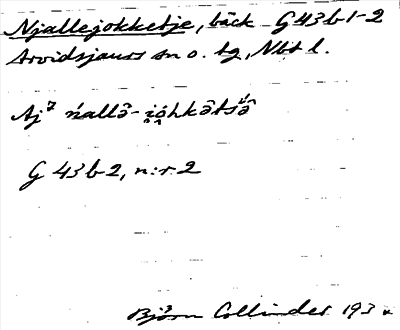 Njallejokketje, bäck G43b1-2
Arvidsjaurs sn o. tg, Nbt l.
Aj⁷ ńallȧ̂-i̯ȯ̭hkȧ̂tsȧ̂
G 43 b 2, n:r 2
Björn Collinder 193